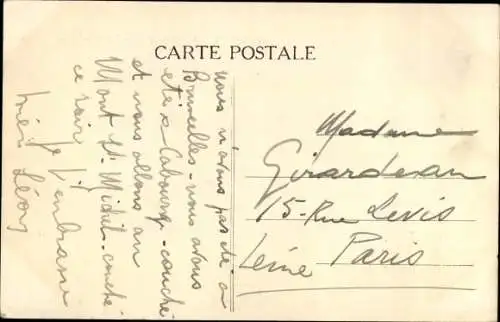 CARTE POSTALE
nous n'avons pas de à
Bruxelles - nous avons
été à Cabourg - couché
et nous allons au
Mont St. Michel - couché
ce soir
Je t'embrasse
Léon
Madame
Girardeau
15 - Rue Levis
Paris